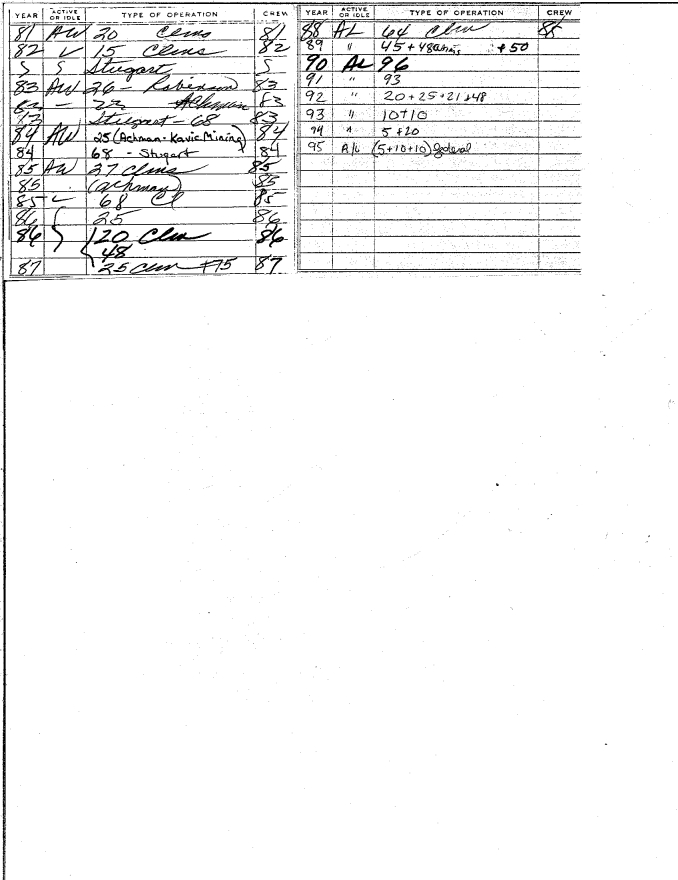 YEAR ACTIVE OR IDLE TYPE OF OPERATION CREW
81 AW 20 Clms 81
82 ✓ 15 Clms 82
S S Stugart S
83 AW 26 - Robinson 83
83 - 22 Achman 83
83 Stugart - 68 83
84 AW 25 (Achman - Kavic Mining) 84
84 68 - Stugart 84
85 AW 27 Clms 85
85 (achman) 85
85 68 Cl 85
86 25 86
86 120 Clm 86
48
87 25 Clm +75 87
YEAR ACTIVE OR IDLE TYPE OF OPERATION CREW
88 AL 64 Clm 88
89 " 45 + 48 +50
90 AL 96
91 " 93
92 " 20 + 25 + 21 + 48
93 " 10+10
94 " 5 +20
95 A/L (5+10+10) federal